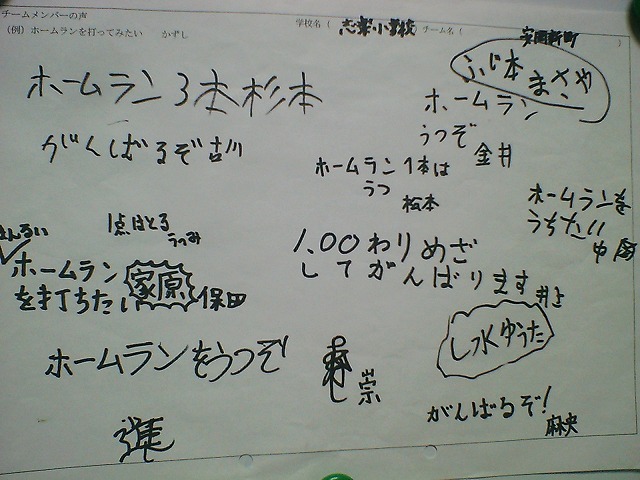 チームメンバーの声
(例) ホームランを打ってみたい　かずし
学校名 ( 志楽小学校 チーム名 (
)
ふじ本 まさや
ホームラン3本 杉本
ホームラン
うつぞ
金井
がんばるぞ 古川
ホームラン1本は
うつ
松本
ホームランを
うちたい!
1点はとる
うつみ
まんるい
ホームラン
を打ちたい
家原
保田
1,00わりめざ
してがんばります 井上
し水ゆうた
ホームランをうつぞ
崇
進
がんばるぞ!
麻央